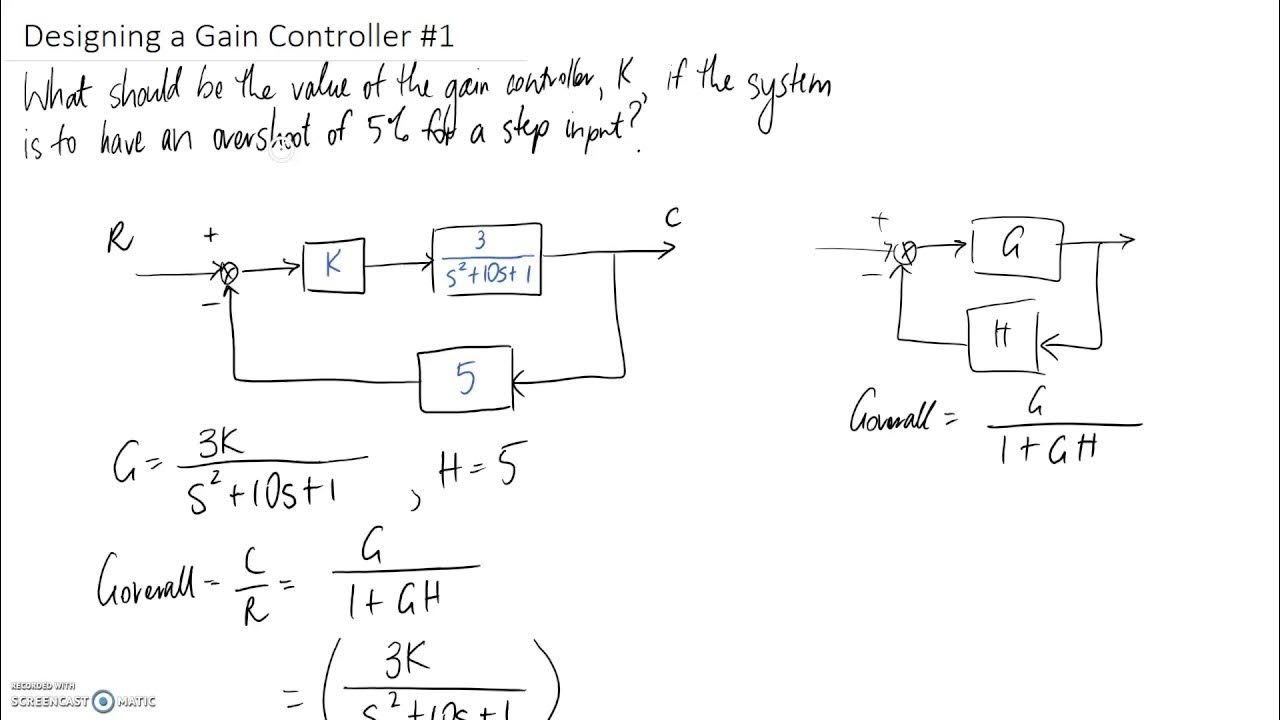 Designing a Gain Controller #1
What should be the value of the gain controller, K, if the system
is to have an overshoot of 5% for a step input?
R + K 3 / s²+10s+1 C
−
5
+ G
−
H
Goverall = G / 1 + GH
G = 3K / s²+10s+1 , H = 5
Goverall = C / R = G / 1 + GH
= ( 3K / s²+10s+1 )
RECORDED WITH
SCREENCAST MATIC